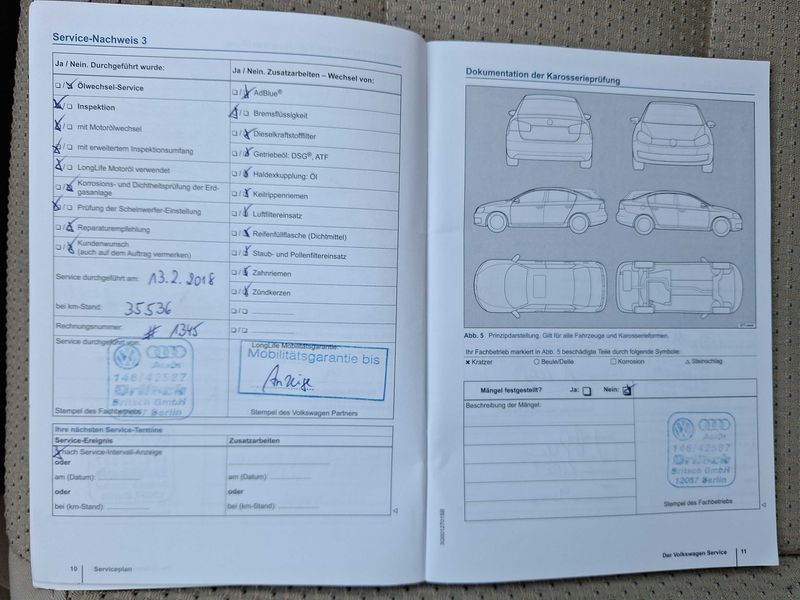 Service-Nachweis 3
Ja / Nein. Durchgeführt wurde:
Ölwechsel-Service
Inspektion
mit Motorölwechsel
mit erweitertem Inspektionsumfang
LongLife Motoröl verwendet
Korrosions- und Dichtheitsprüfung der Erd-
gasanlage
Prüfung der Scheinwerfer-Einstellung
Reparaturempfehlung
Kundenwunsch
(auch auf dem Auftrag vermerken)
Service durchgeführt am: 13.2.2018
bei km-Stand: 35536
Rechnungsnummer: # 1345
Service durchgeführt von:
Audi
146/42587
Britsch GmbH
Berlin
Stempel des Fachbetriebs
Ja / Nein. Zusatzarbeiten – Wechsel von:
AdBlue®
Bremsflüssigkeit
Dieselkraftstofffilter
Getriebeöl: DSG®, ATF
Haldexkupplung: Öl
Keilrippenriemen
Luftfiltereinsatz
Reifenfüllflasche (Dichtmittel)
Staub- und Pollenfiltereinsatz
Zahnriemen
Zündkerzen
LongLife Mobilitätsgarantie:
Mobilitätsgarantie bis
Anzeige
Stempel des Volkswagen Partners
Ihre nächsten Service-Termine
Service-Ereignis
Zusatzarbeiten
nach Service-Intervall-Anzeige
oder
am (Datum):
am (Datum):
oder
oder
bei (km-Stand):
bei (km-Stand):
10 Serviceplan
Dokumentation der Karosserieprüfung
Abb. 5 Prinzipdarstellung. Gilt für alle Fahrzeuge und Karosserieformen.
Ihr Fachbetrieb markiert in Abb. 5 beschädigte Teile durch folgende Symbole:
Kratzer Beule/Delle Korrosion Steinschlag
Mängel festgestellt? Ja: Nein:
Beschreibung der Mängel:
Audi
146/42587
Britsch GmbH
12057 Berlin
Stempel des Fachbetriebs
Der Volkswagen Service 11